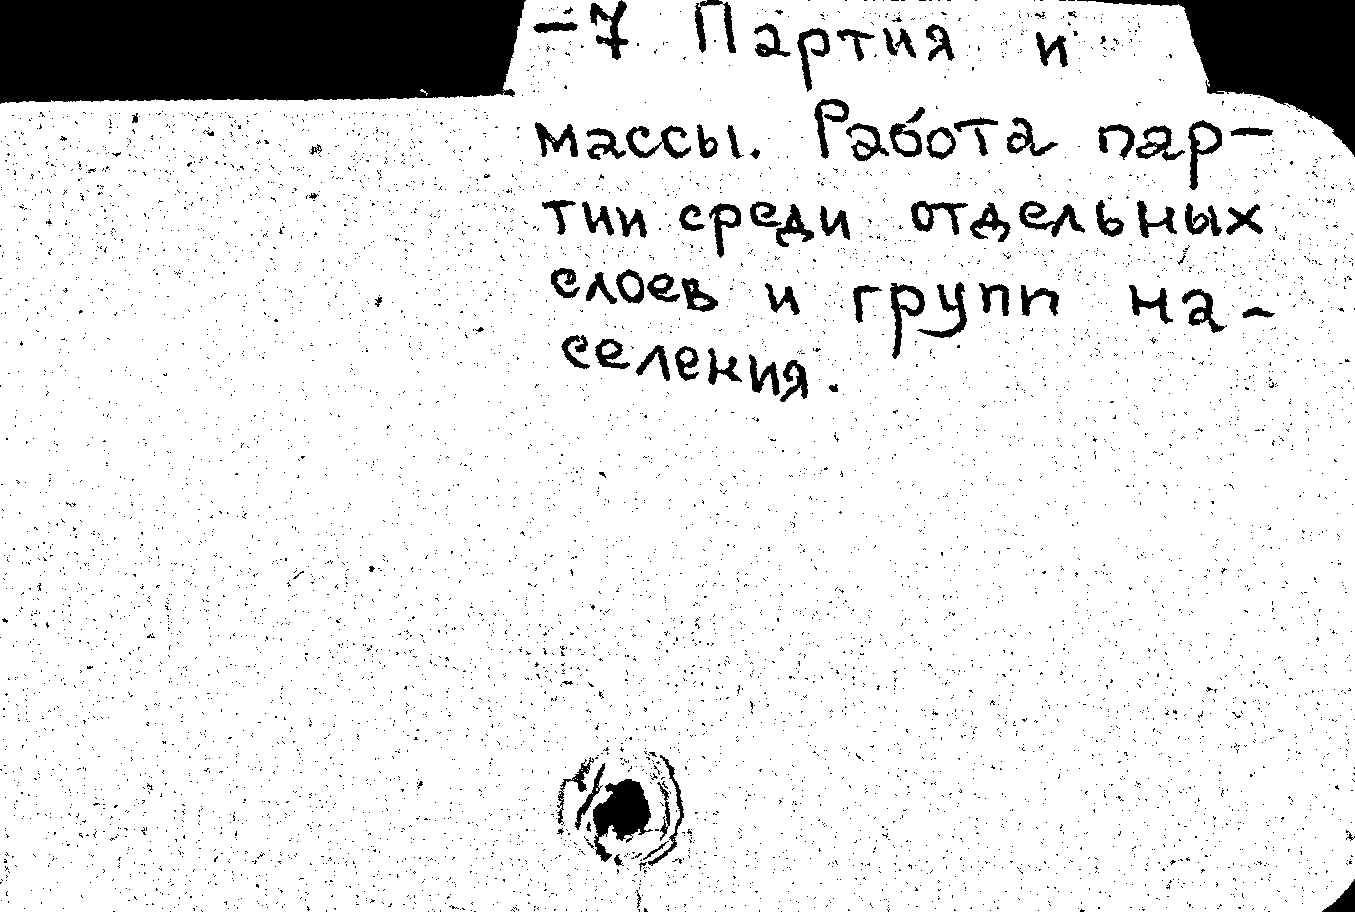 -7 Партия и
массы. Работа пар-
тии среди отдельных
слоев и групп на-
селения.